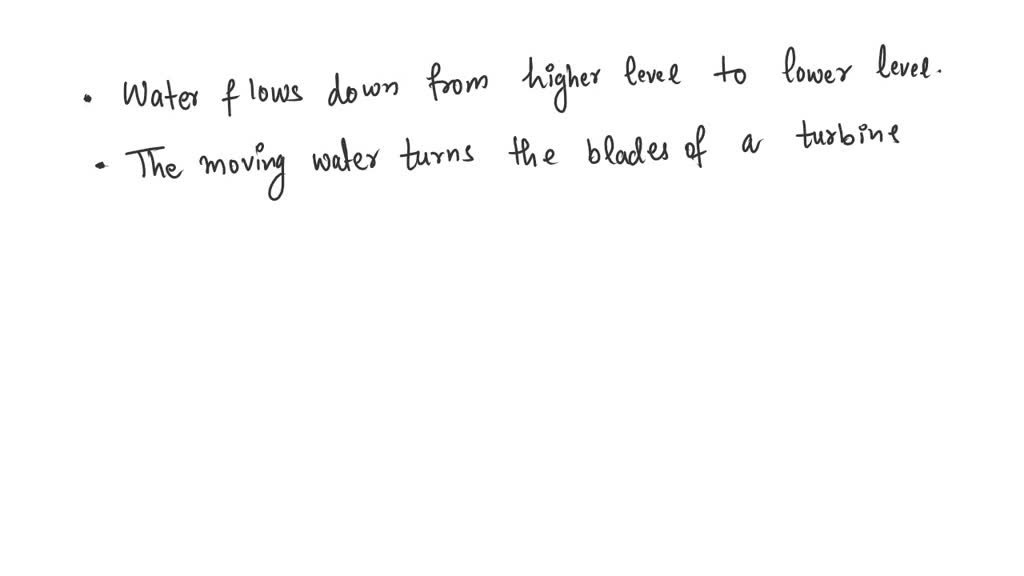 • Water flows down from higher level to lower level.
• The moving water turns the blades of a turbine